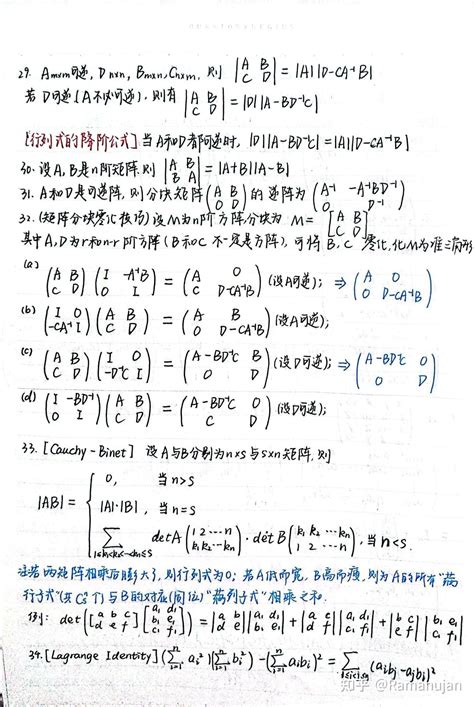 29. Am×m可逆, Dn×n, Bm×n, Cn×m, 则 |A B; C D| = |A||D-CA⁻¹B|
若D可逆(A不必可逆), 则有 |A B; C D| = |D||A-BD⁻¹C|
[行列式的降阶公式] 当A和D都可逆时, |D||A-BD⁻¹C| = |A||D-CA⁻¹B|
30. 设A,B是n阶矩阵, 则 |A B; B A| = |A+B||A-B|
31. A和D是可逆阵, 则分块矩阵 (A B; 0 D) 的逆阵为 (A⁻¹ -A⁻¹BD⁻¹; D⁻¹)
32. (矩阵分块零化技巧) 设M为n阶方阵分块为 M = [A B; C D]
其中A,D为r和n-r阶方阵 (B和C不一定是方阵), 可将B,C零化, 化M为准三角形
(a) (A B; C D)(I -A⁻¹B; 0 I) = (A 0; C D-CA⁻¹B) (设A可逆); ⇒ (A 0; 0 D-CA⁻¹B)
(b) (I 0; -CA⁻¹ I)(A B; C D) = (A B; 0 D-CA⁻¹B) (设A可逆);
(c) (A B; C D)(I 0; -D⁻¹C I) = (A-BD⁻¹C B; 0 D) (设D可逆); ⇒ (A-BD⁻¹C 0; 0 D)
(d) (I -BD⁻¹; 0 I)(A B; C D) = (A-BD⁻¹C 0; C D) (设D可逆);
33. [Cauchy-Binet] 设A与B分别为n×s与s×n矩阵, 则
|AB| = { 0, 当n>s
|A|·|B|, 当n=s
∑ 1≤k₁<k₂<…<kn≤s detA(1 2 … n; k₁ k₂ … kn)·detB(k₁ k₂ … kn; 1 2 … n), 当n<s.
注若两矩阵相乘后膨大了, 则行列式为0; 若A低而宽, B高而瘦, 则为A的所有"
行子式"(共 个)与B的对应(同位)" 列子式"相乘之和.
例: det([a b c; d e f][a₁ d₁; b₁ e₁; c₁ f₁]) = |a b; d e||a₁ d₁; b₁ e₁| + |a c; d f||a₁ d₁; c₁ f₁| + |b c; e f||b₁ e₁; c₁ f₁|
34. [Lagrange Identity] (∑ᵢ₌₁ⁿ aᵢ²)(∑ᵢ₌₁ⁿ bᵢ²) - (∑ᵢ₌₁ⁿ aᵢbᵢ)² = ∑ 1≤i<j≤n (aᵢbⱼ-aⱼbᵢ)²
知乎 @Ramanujan